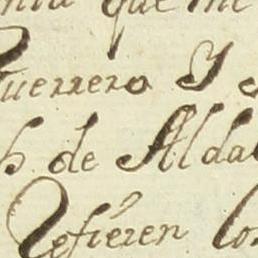 que mi
Guerrero Y
de Alda
Refieren Lo